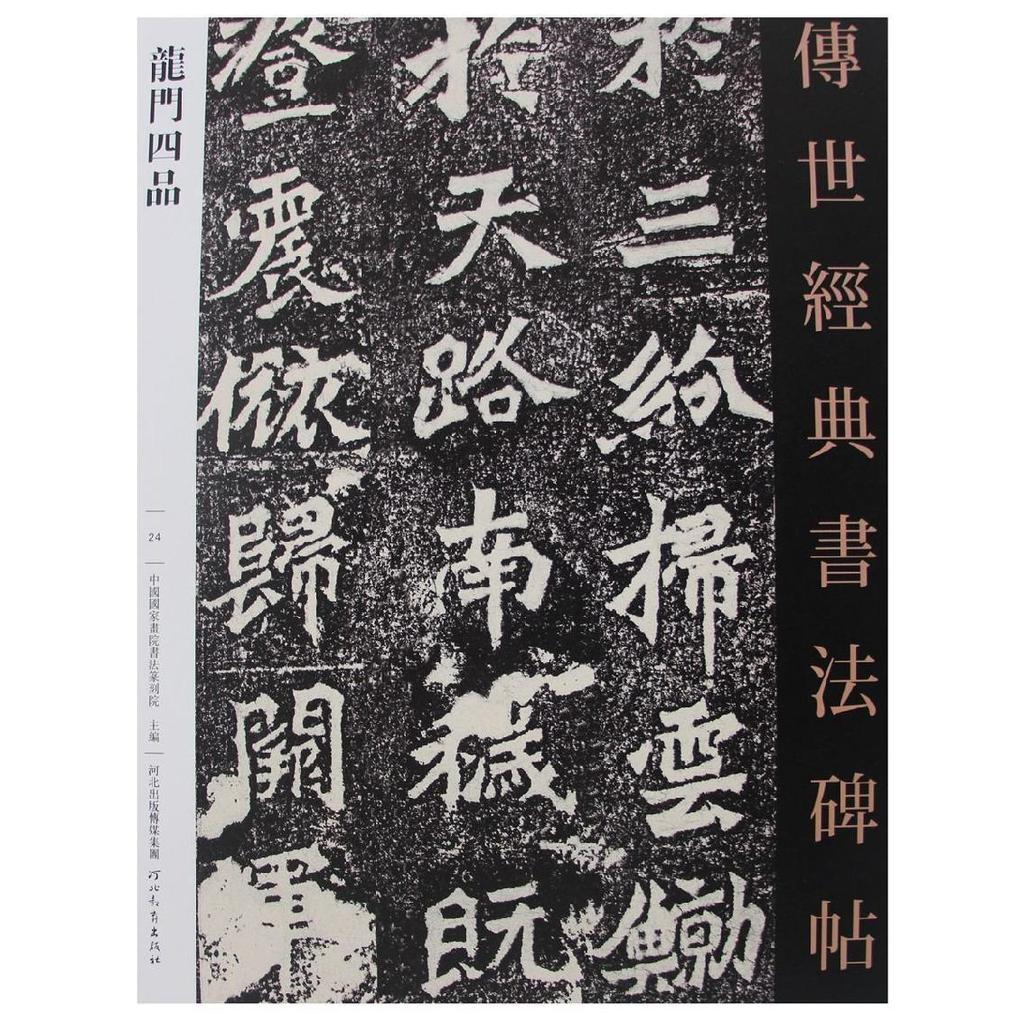 傳世經典書法碑帖
於三紛掃雲鷁
於天路南穢既
澄震依歸闕軍
龍門四品
24
中國國家畫院書法篆刻院 主編
河北出版傳媒集團
河北教育出版社